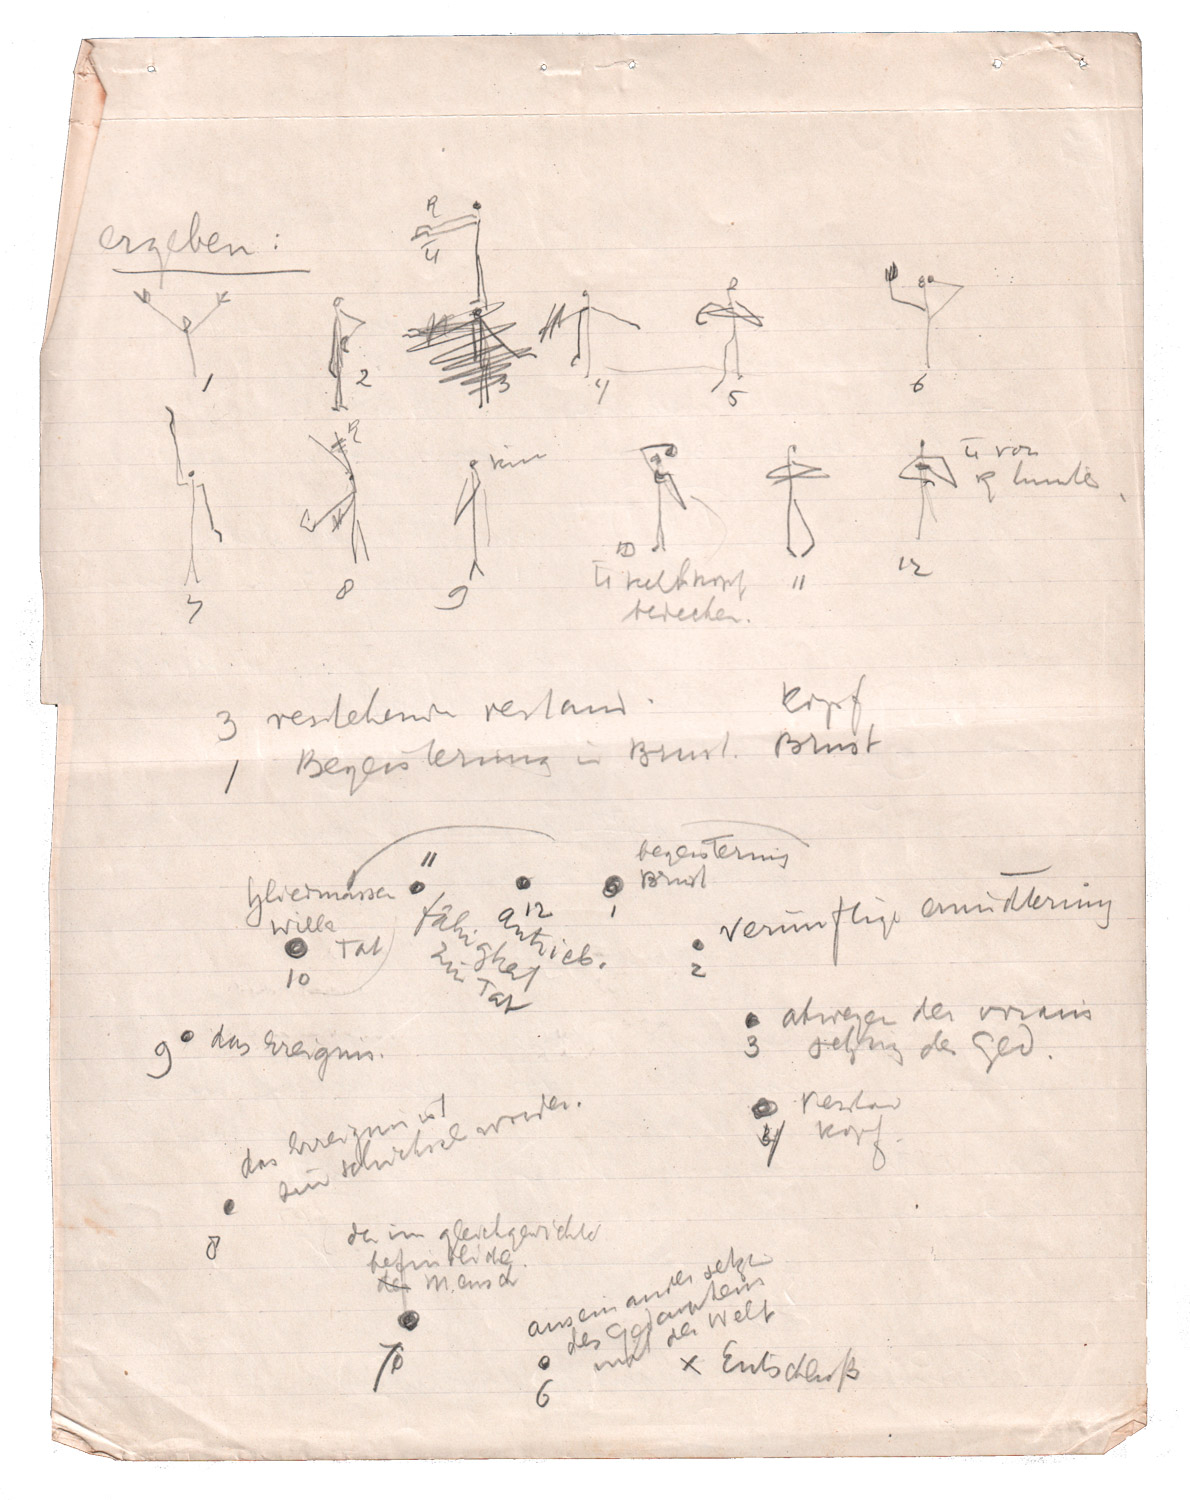 ergeben:
R
Li
1
2
3
4
5
6
R
Li von
R hinten
kinn
7
8
9
10
11
12
bedecken.
3 verstehende verstand. Kopf
1 Begeisterung in Brust. Brust
11
begeisterung
Brust
Gliedmassen
Wille
Tat
10
Fähigkeit
zur
Tat
12
Antrieb.
1
vernünftige ernüchterung
2
9 das Ereignis.
abwegen der voraus
3 setzung der Ged.
Verstand
4 Kopf.
das Ereignis ist
zum schicksal worden.
8
der im gleichgewichte
befindliche
der Mensch
7
auseinander setzen
des Gedankens
mit der Welt
6
x Entschluß